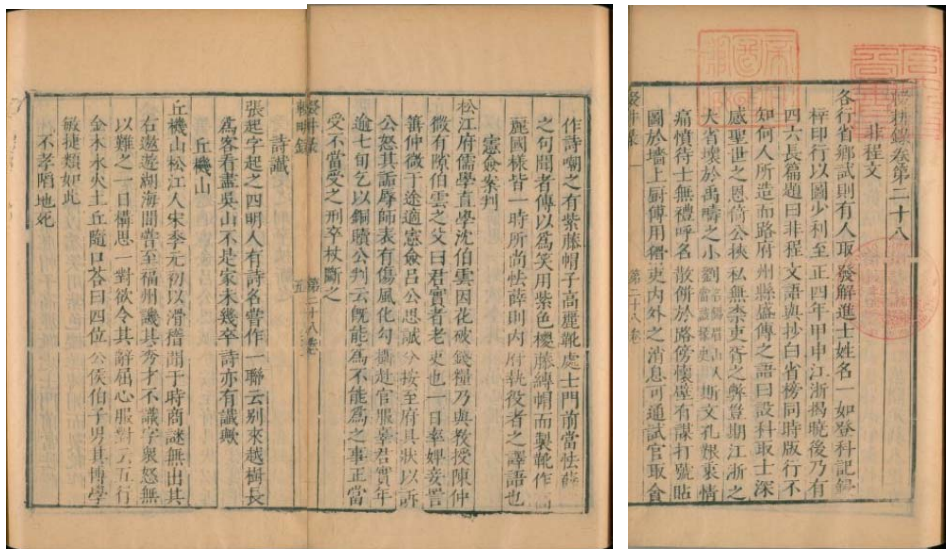 輟耕錄卷第二十八
非程文
各行省鄉試則有人取發解進士姓名一如登科記錄
梓印行以圖少利至正四年甲申江浙揭曉後乃有
四六長篇題曰非程文語與抄白省榜同時版行不
知何人所造而路府州縣盛傳之語曰設科取士深
感聖世之恩倚公挾私無柰吏胥之弊豈期江浙之
大省壞於禹疇之小劉斯文孔艱衷情
痛憤待士無禮呼名散餅於路傍懷壁有謀打號貼
圖於墻上厨傳用猾吏内外之消息可通試官取貪
作詩嘲之有紫藤帽子高麗靴處士門前當怯薛
之句聞者傳以爲笑用紫色椶藤縛帽而製靴作高
麗國樣皆一時所尚怯薛則内府執役者之譯語也
憲僉案判
松江府儒學直學沈伯雲因花破錢糧乃與教授陳仲
微有隙伯雲之父曰君實者老吏也一日率婢妾詈
講仲微于途適憲僉呂公思誠分按至府具狀以訴
公怒其詬辱師表有傷風化勾攝赴官服辜君實年
逾七旬乞以銅贖公判云旣能爲不能爲之事正當
受不當受之刑卒杖斷之
輟耕錄
第二十八卷
詩讖
張起字起之四明人有詩名嘗作一聯云别來越樹長
爲客看盡吳山不是家未幾卒詩亦有讖歟
丘機山
丘機山松江人宋季元初以滑稽聞于時商謎無出其
右遨遊湖海間嘗至福州譏其秀才不識字衆怒無
以難之一日構思一對欲令其辭屈心服對云五行
金木水火土丘隨口荅曰四位公侯伯子男其博學
敏捷類如此
不孝陷地死